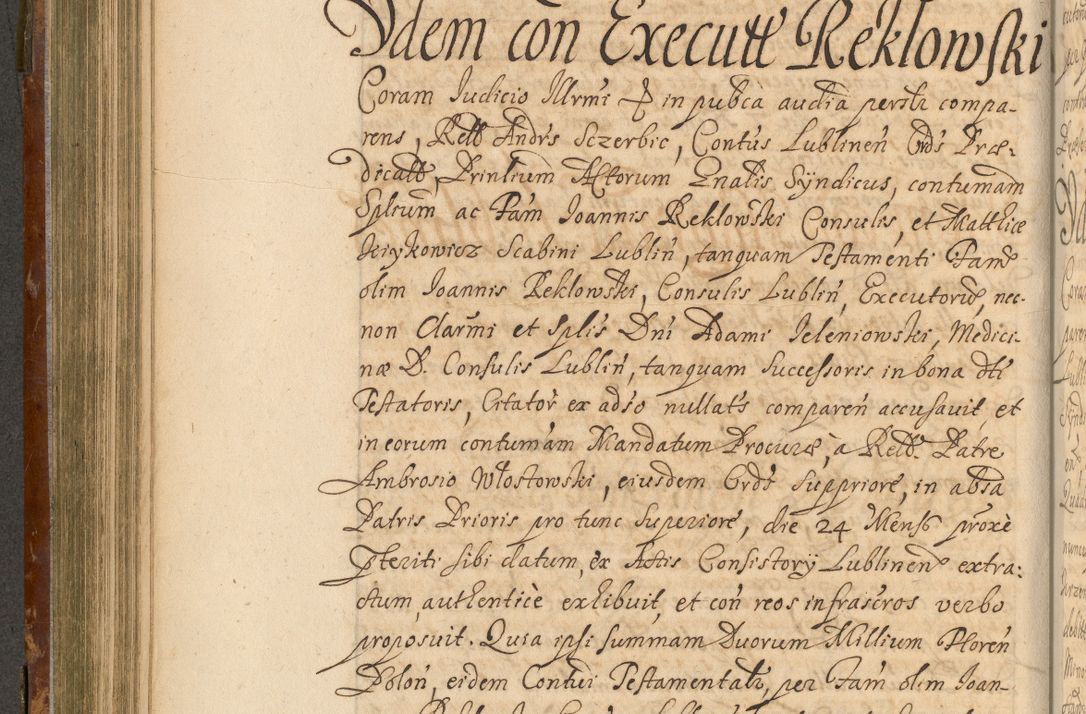 Idem con Executt Reklowski
Coram Iudicio Illrmi & in pubca audia persltr compa-
rens, Rett Andrs Sczerbic, Contus Lublinen Ords Præ-
dicatt, Prinlium Actorum Gnalis Syndicus, contumam
Splium ac Fam Ioannis Reklowski Consulis, et Matthiæ
Kiykowicz Scabini Lublin, tanquam Testamenti Fam
olim Ioannis Reklowski, Consulis Lublin, Executorū, nec-
non Clarmi et Splis Dni Adami Ieleniowski, Medici-
næ D. Consulis Lublin, tanquam Successoris in bona dti
Testatoris, Citator ex adso nullats comparen accusavit, et
in eorum contumam Mandatum Procuræ, a Reltt. Patre
Ambrosio Włostowski, eiusdem Ords Suppriore, in absa
Patris Prioris pro tunc Superiore, die 24 Mensis proxe
pteriti sibi datum, ex Actis Consistory Lublinen extra:
ctum, authentice exhibuit, et con reos infrascros verbo
proposuit. Quia ipsi summam Duorum Millium Floren
Polon, eidem Contui Testamentalr, per Fam olim Ioan-